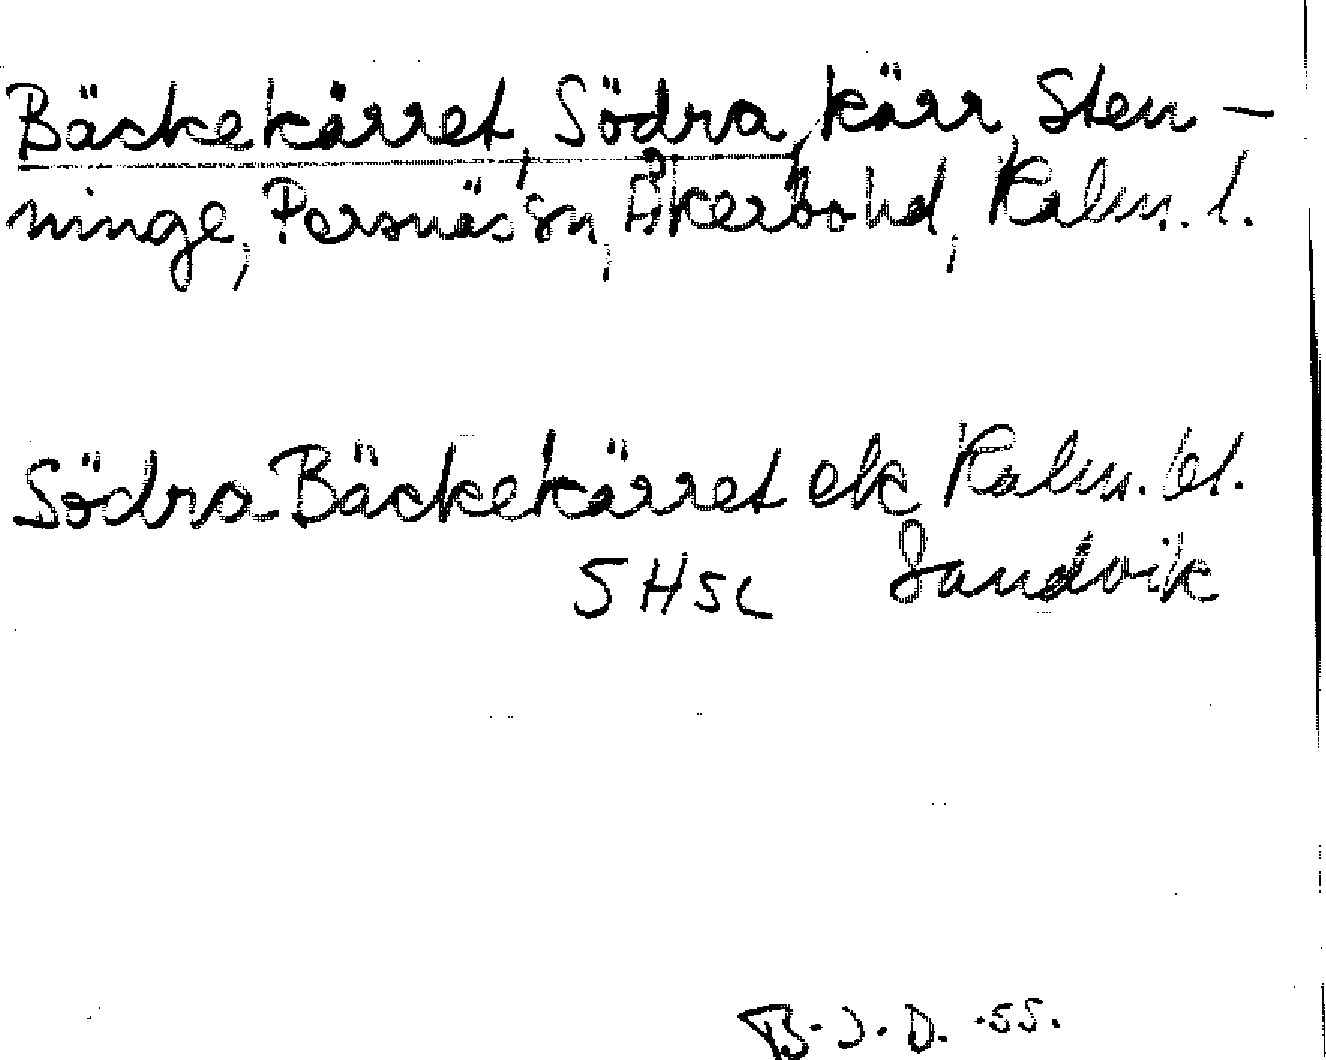 Bäckekärret, Södra, kärr, Sten-
ninge, Persnäs sn, Åkerbo hd, Kalm. l.
Södra Bäckekärret ek Kalm. bl.
5 H 5c Sandvik
B. J. D. -55.